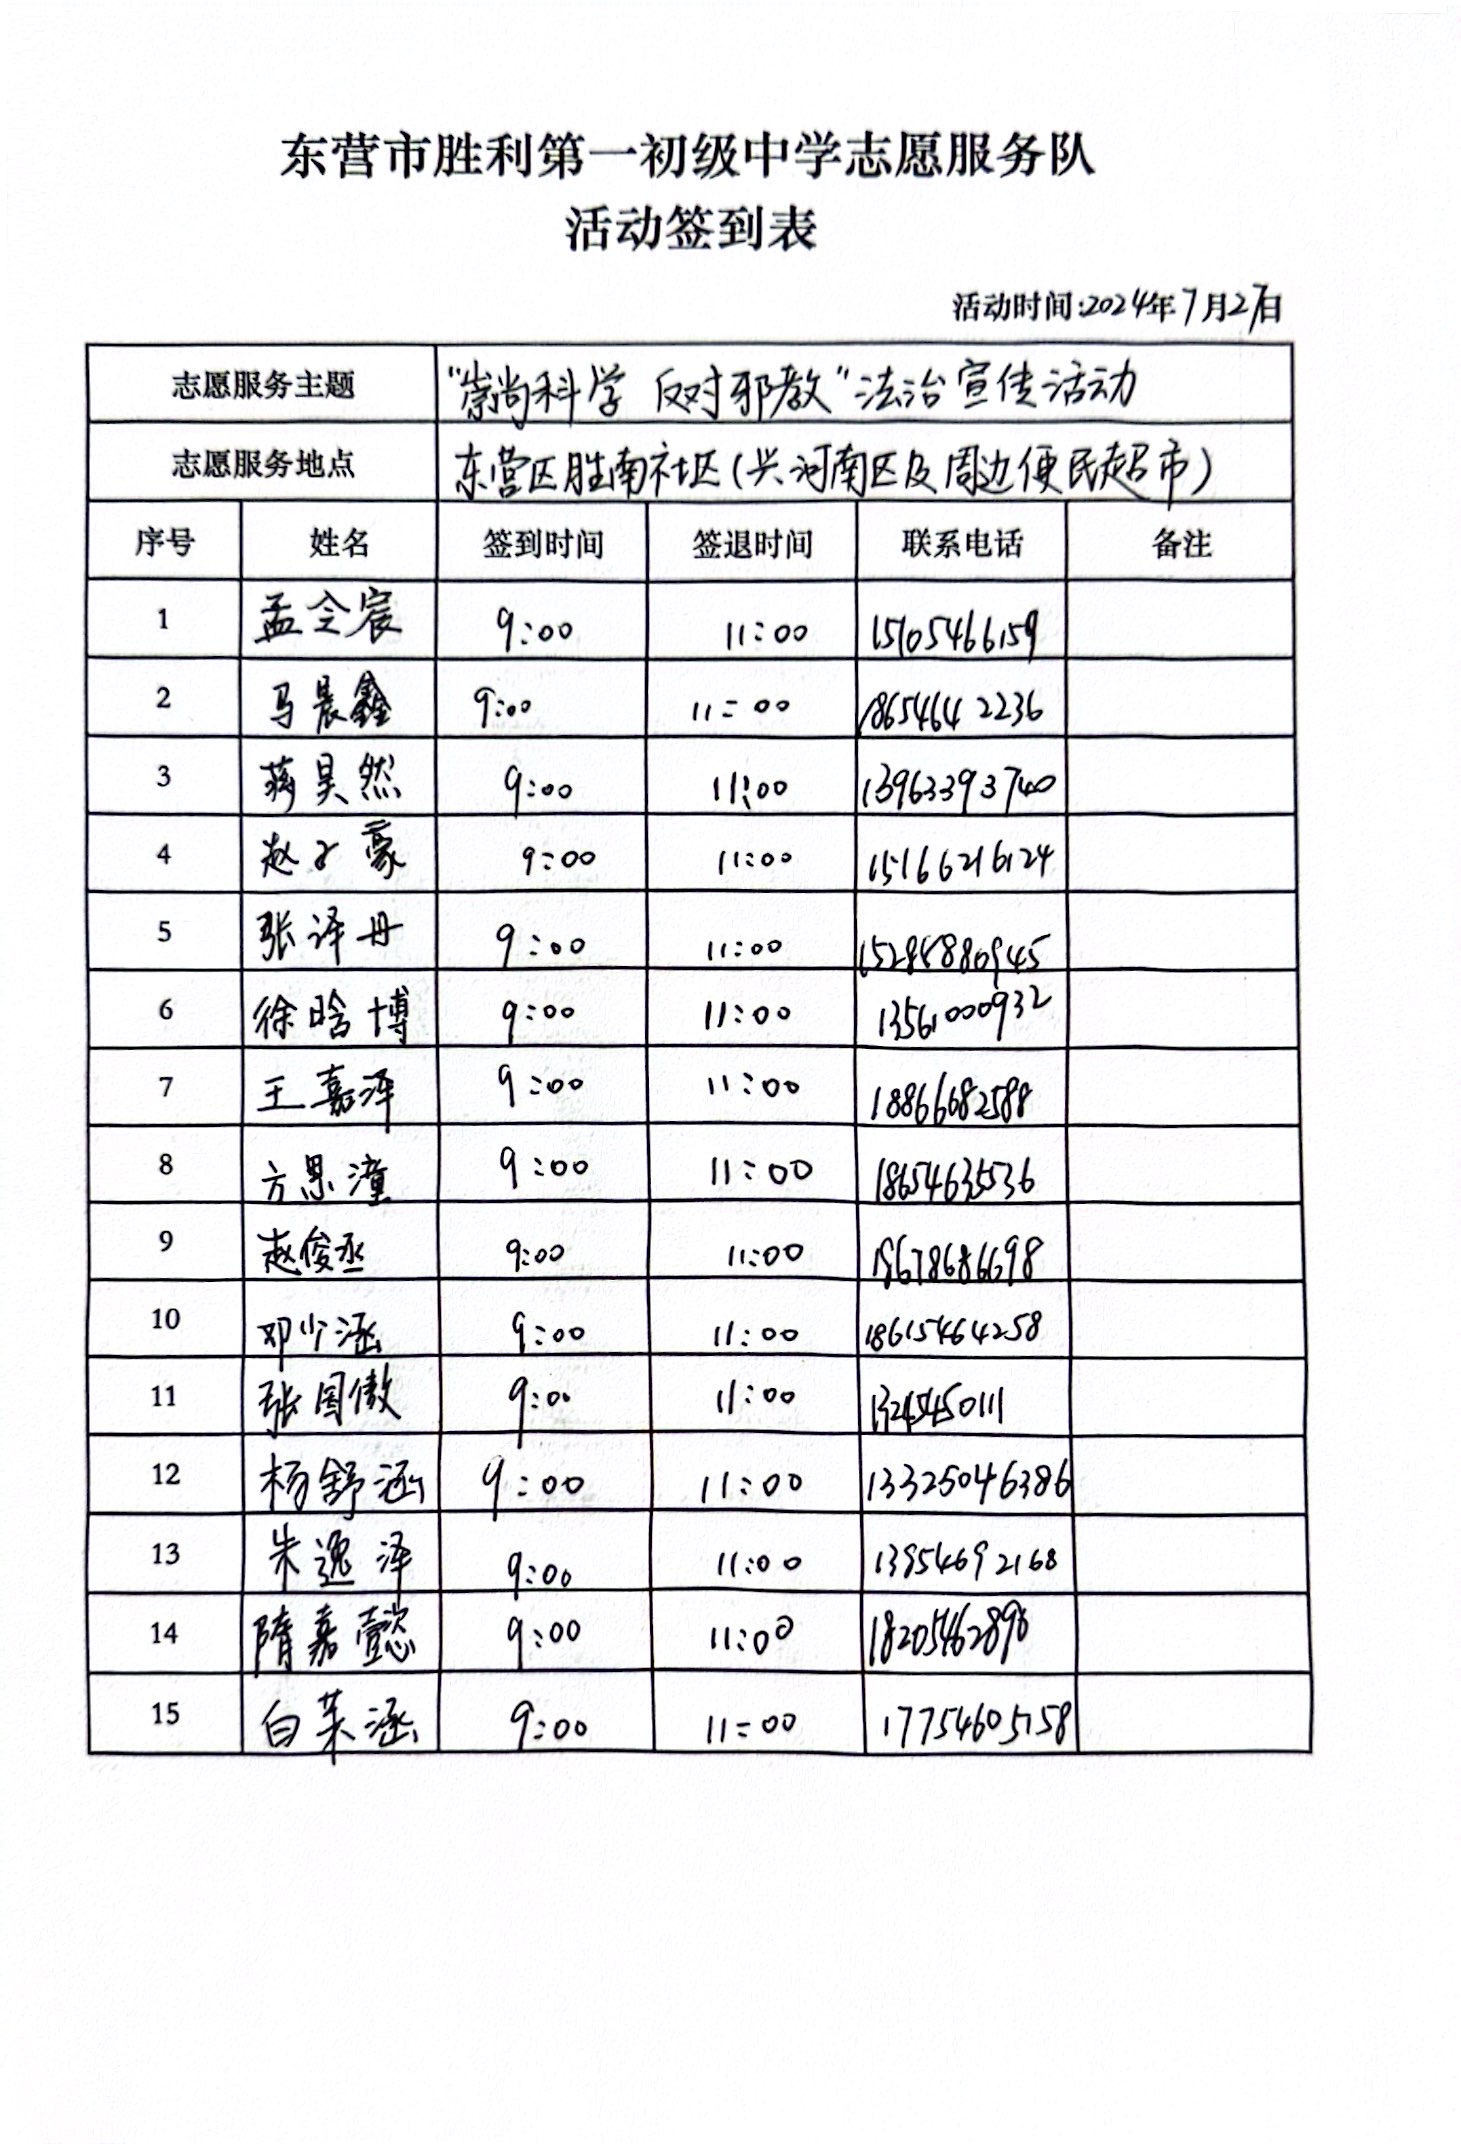 东营市胜利第一初级中学志愿服务队
活动签到表
活动时间:2024年7月27日
志愿服务主题 “崇尚科学 反对邪教”法治宣传活动
志愿服务地点 东营区胜南社区(兴河南区及周边便民超市)
序号 姓名 签到时间 签退时间 联系电话 备注
1 孟令宸 9:00 11:00 15105466159
2 马晨鑫 9:00 11:00 18654642236
3 蒋昊然 9:00 11:00 13963393740
4 赵子豪 9:00 11:00 15166216124
5 张泽丹 9:00 11:00
6 徐晗博 9:00 11:00 13561000932
7 王嘉泽 9:00 11:00 18866682588
8 方思潼 9:00 11:00 18654635536
9 赵俊丞 9:00 11:00 18678686698
10 邓少涵 9:00 11:00 18615464258
11 张国傲 9:00 11:00
12 杨舒涵 9:00 11:00 13325046386
13 朱逸泽 9:00 11:00 13954692168
14 隋嘉懿 9:00 11:00 18205462896
15 白茉涵 9:00 11:00 17754605158